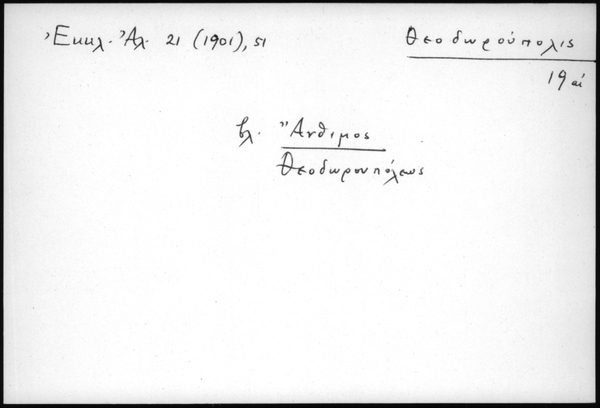 Ἐκκλ. Ἀλ. 21 (1901), 51
Θεοδωρούπολις
19 αἰ
βλ. Ἄνθιμος
Θεοδωρουπόλεως